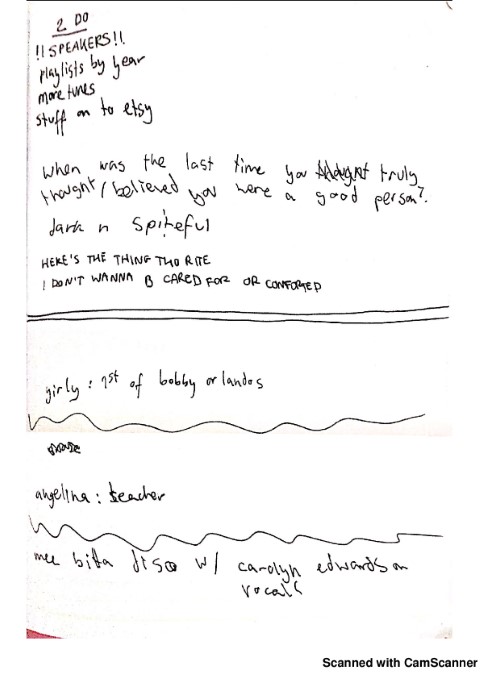 2 DO
!! SPEAKERS!!
playlists by year
more tunes
stuff on to etsy
when was the last time you truly
thought/believed you were a good person?
dark n spiteful
HERE'S THE THING THO RITE
I DON'T WANNA B CARED FOR OR COMFORTED
girly: 1st of bobby orlandos
angelina: teacher
bitta disco w/ carolyn edwards on
vocals
Scanned with CamScanner